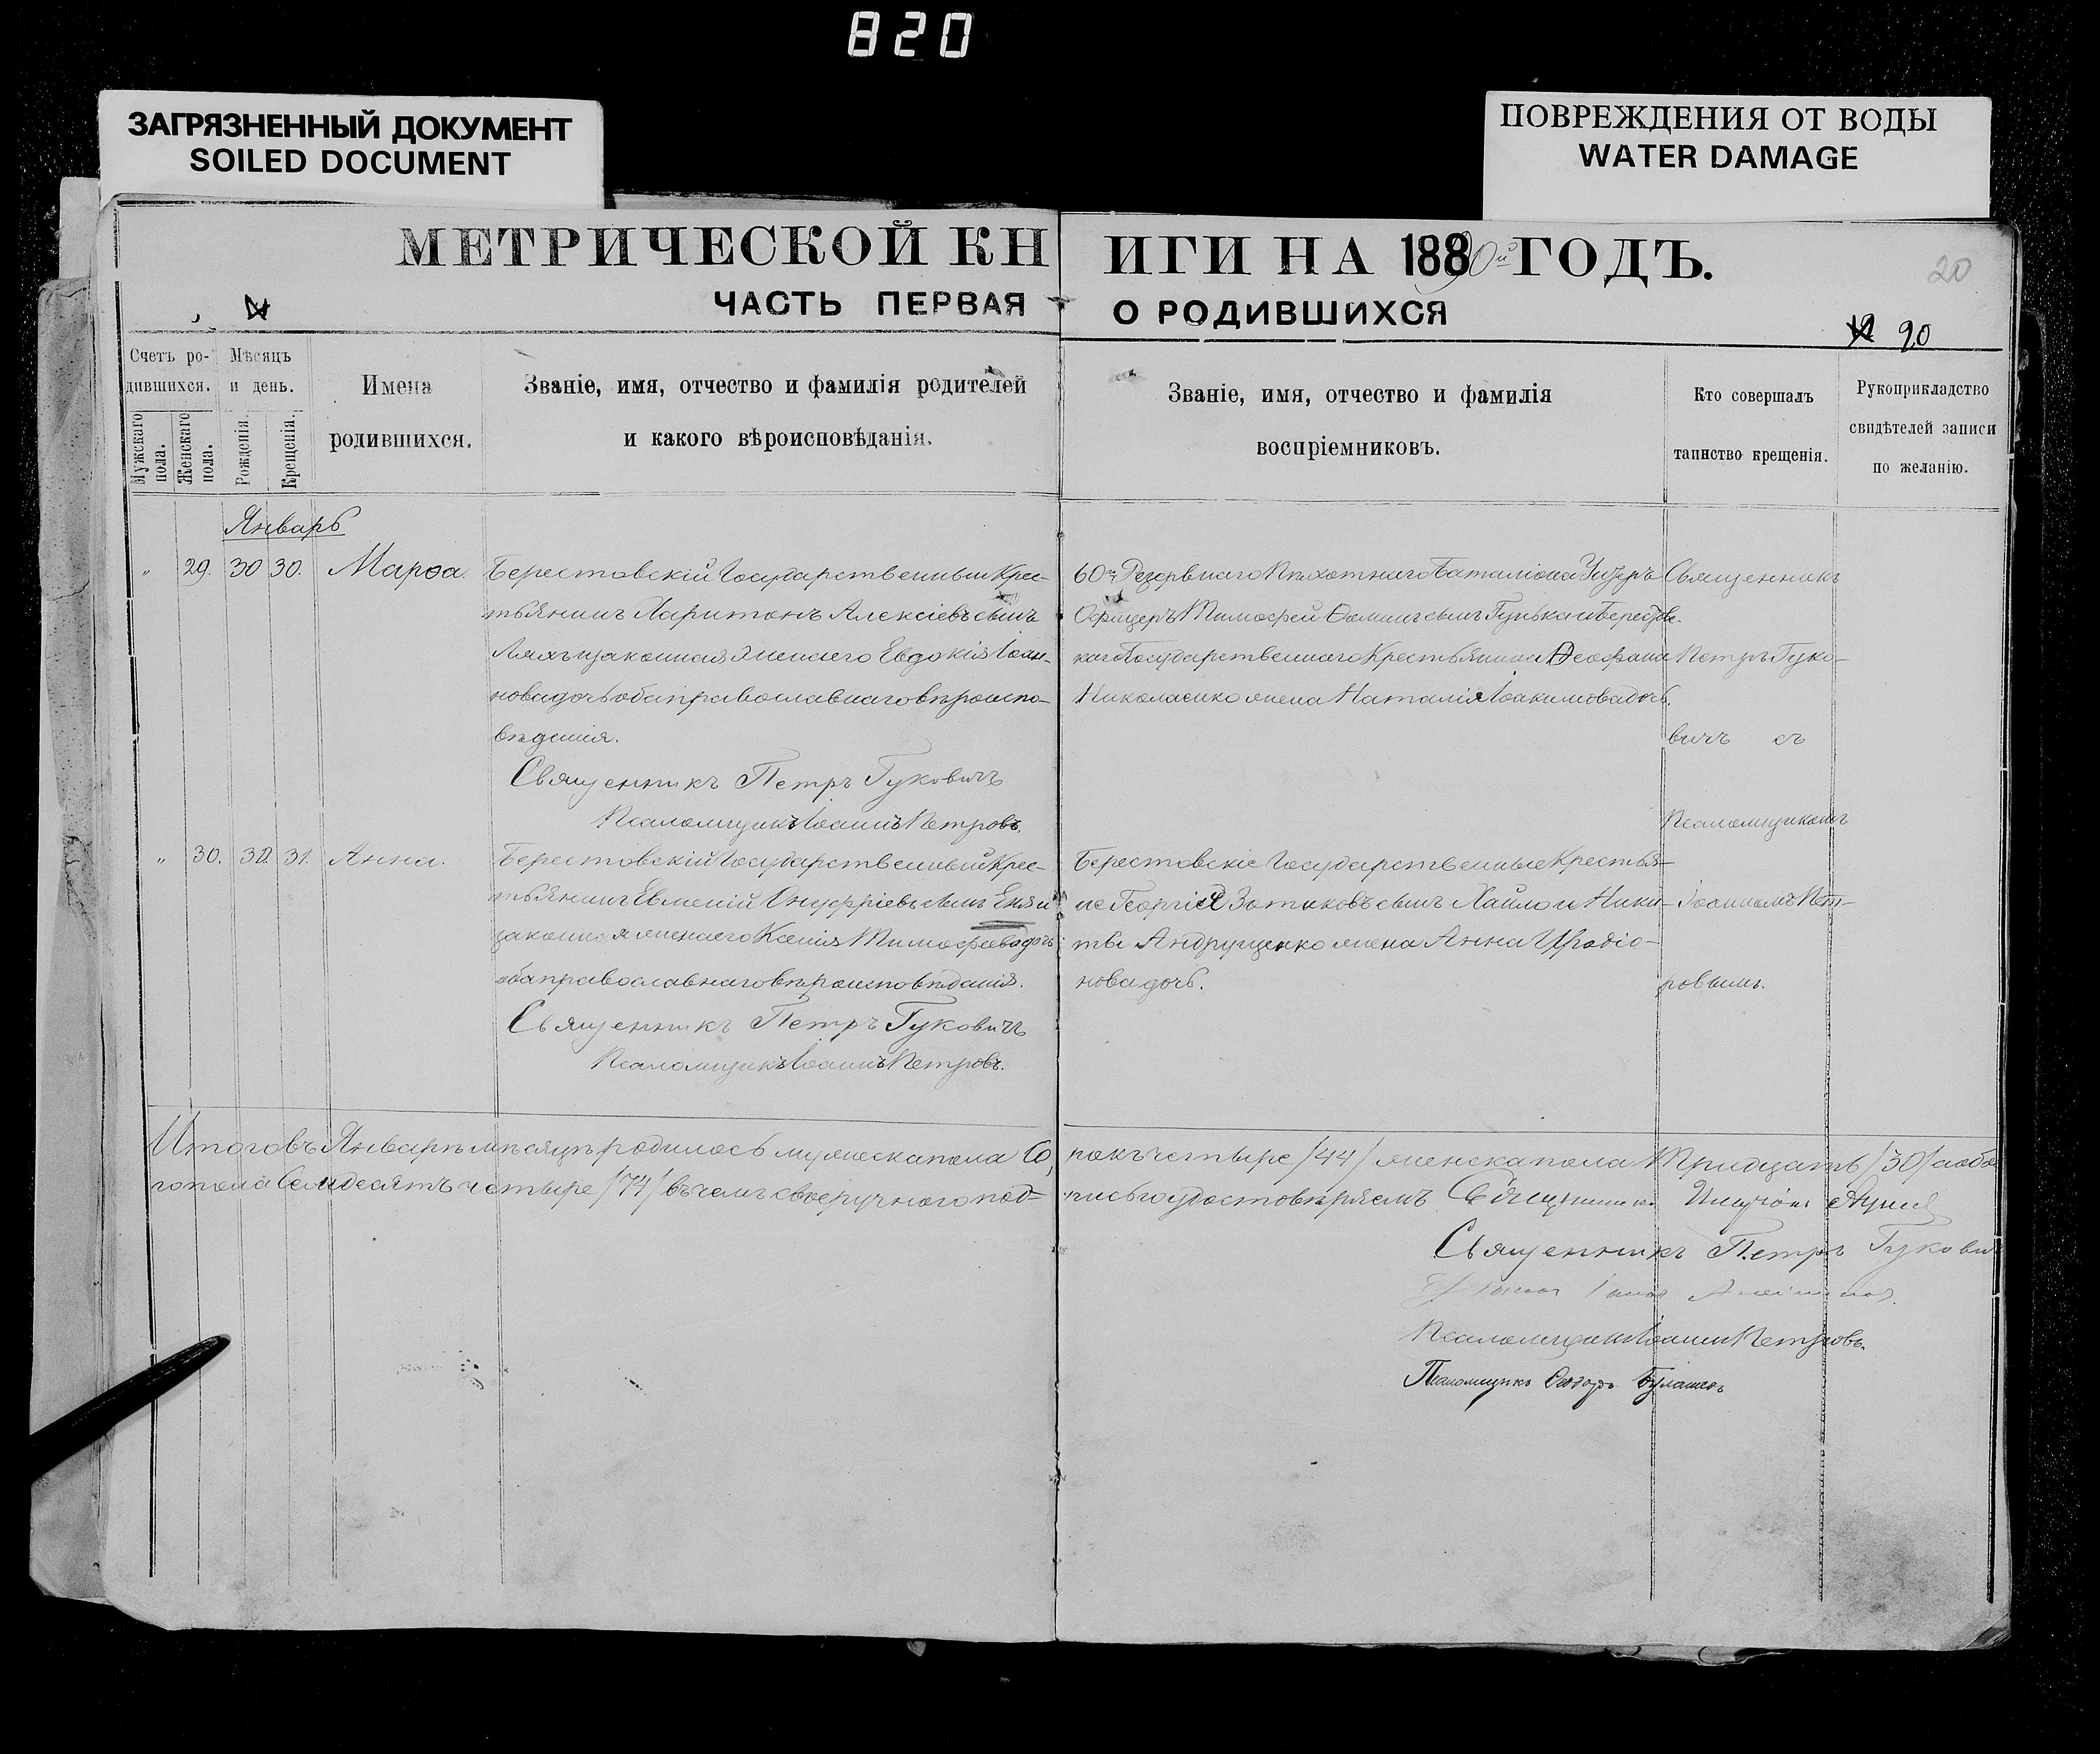 820
ЗАГРЯЗНЕННЫЙ ДОКУМЕНТ
SOILED DOCUMENT
ПОВРЕЖДЕНИЯ ОТ ВОДЫ
WATER DAMAGE
МЕТРИЧЕСКОЙ КНИГИ НА 18890й ГОДЪ.
20
ЧАСТЬ ПЕРВАЯ О РОДИВШИХСЯ
90
Счетъ родившихся.
Мужскаго пола.
Женскаго пола.
Мѣсяцъ и день.
Рожденія.
Крещенія.
Имена
родившихся.
Званіе, имя, отчество и фамилія родителей
и какого вѣроисповѣданія.
Званіе, имя, отчество и фамилія
воспріемниковъ.
Кто совершалъ
таинство крещенія.
Рукоприкладство
свидѣтелей записи
по желанію.
Январь
„ 29. 30 30. Марѳа.
Берестовскій Государственный Крес-
тьянинъ Харитонъ Алексіевъ сынъ
Ляхъ и законная жена его Евдокія Іоан-
нова дочь оба православнаго вѣроиспо-
вѣданія.
Священникъ Петръ Гуковичъ
Псаломщикъ Іоаннъ Петровъ.
60го Резервнаго Пѣхотнаго Баталіона Унтеръ
Офицеръ Тимоѳей Ѳоминъ сынъ Гунька и Берестов-
скаго Государственнаго Крестьянина Ѳеофана
Николаенко жена Наталія Іоакимова дочь.
Священникъ
Петръ Гуко-
вичъ съ
Псаломщикомъ
Іоанномъ Пет-
ровымъ.
„ 30. 30. 31. Анна.
Берестовскій Государственный Крес-
тьянинъ Евменій Онуфріевъ сынъ
законная жена его Ксенія Тимофеева дочь
оба православнаго вѣроисповѣданія.
Священникъ Петръ Гуковичъ
Псаломщикъ Іоаннъ Петровъ.
Берестовскіе Государственные Крестья-
не Георгій Зотиковъ сынъ Хайло и Ники-
ты Андрущенко жена Анна Иродіо-
нова дочь.
Итого въ Январѣ мѣсяцѣ родилось мужеска пола Со-
рокъ четыре /44/ женска пола Тридцать /30/ а обо-
го пола Семдесятъ четыре /74/ въ чемъ своеручного под-
писью удостовѣряемъ Священникъ
Священникъ Петръ Гукович
Псаломщикъ Іоаннъ Петровъ.
Псаломщикъ Ѳеодоръ